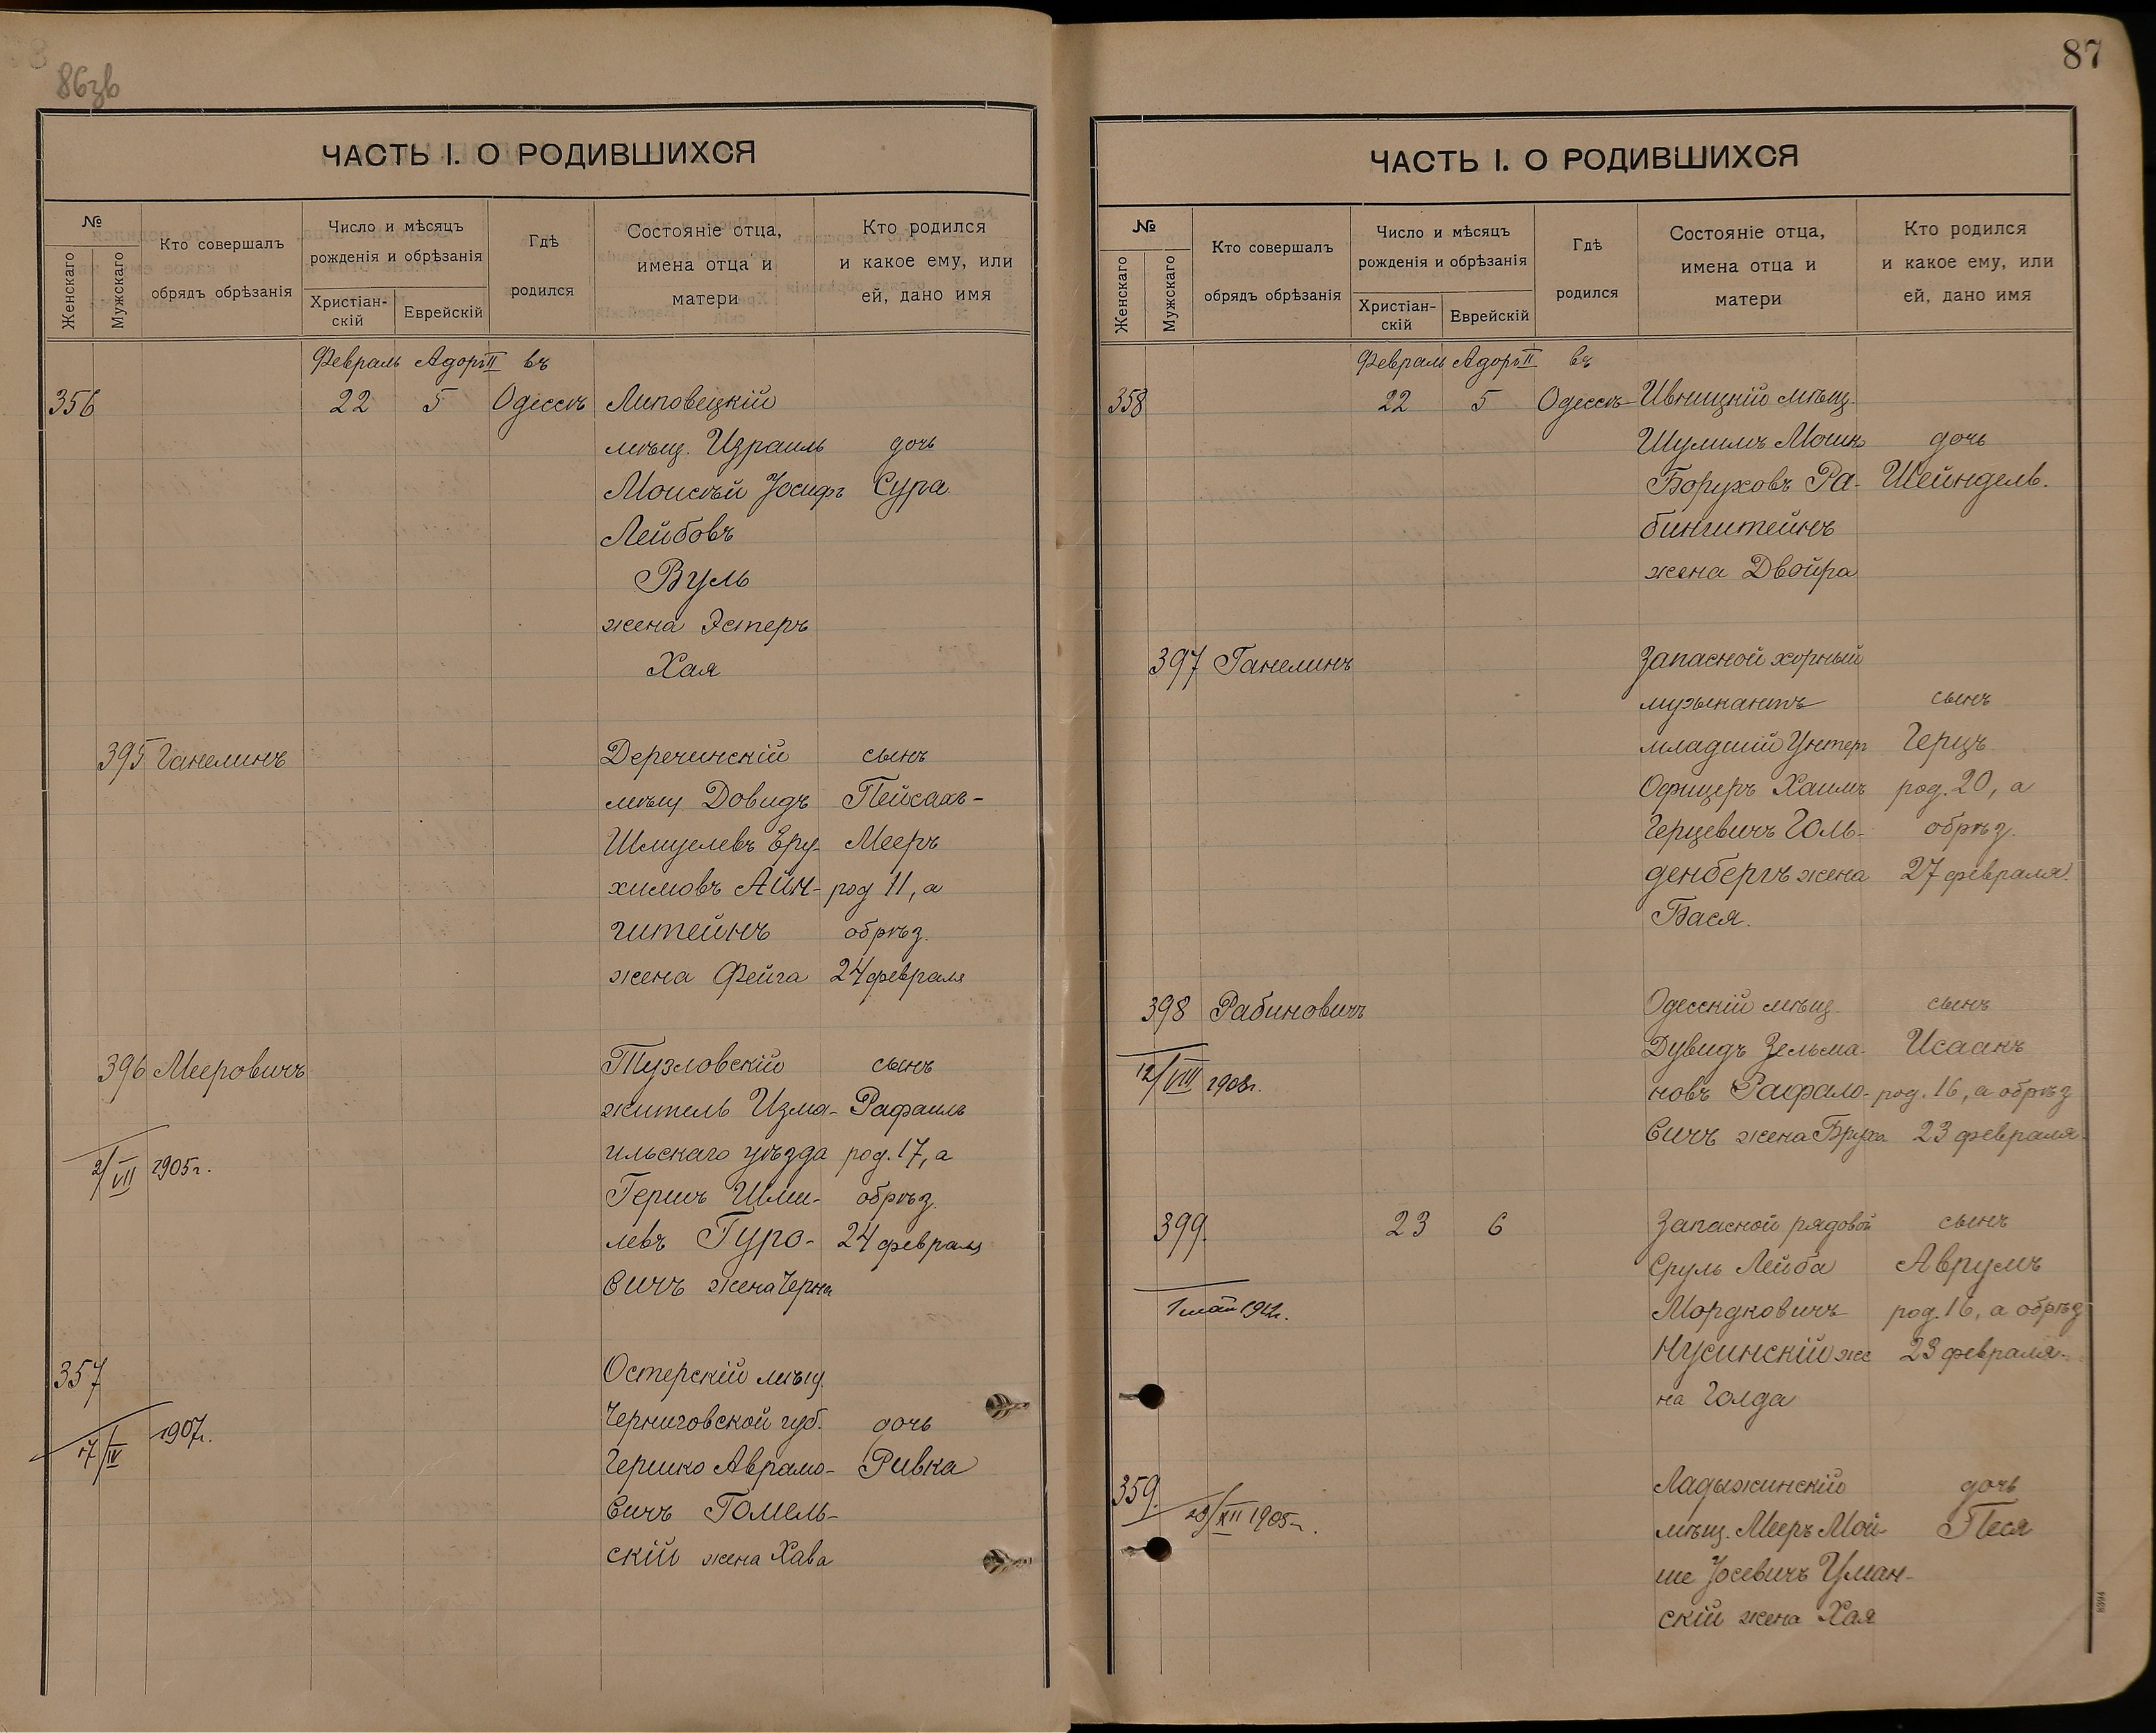 86зв
ЧАСТЬ I. О РОДИВШИХСЯ
№
Женскаго
Мужскаго
Кто совершалъ
обрядъ обрѣзанія
Число и мѣсяцъ
рожденія и обрѣзанія
Христіан-
скій
Еврейскій
Гдѣ
родился
Состояніе отца,
имена отца и
матери
Кто родился
и какое ему, или
ей, дано имя
Февраль Адоръ II въ
356 22 5 Одессѣ Липовецкій
мѣщ. Израиль дочь
Моисѣй Іосифъ Сура
Лейбовъ
Вуль
жена Эстеръ
Хая
395 Ганелинъ Деречинскій сынъ
мѣщ Довидъ Пейсахъ-
Шмулевъ Еру- Мееръ
химовъ Айн- род 11, а
штейнъ обрѣз.
жена Фейга 24 февраля
396 Мееровичъ Тузловскій сынъ
житель Изма- Рафаилъ
ильскаго уѣзда род. 17, а
2/VII 1905 г.
Гершъ Шми- обрѣз.
левъ Гуро- 24 февраля
вичъ жена Черна
357 Остерскій мѣщ.
Черниговской губ. дочь
17/IV 1907 г.
Гершко Аврамо- Ривка
вичъ Гомель-
скій жена Хава
87
ЧАСТЬ I. О РОДИВШИХСЯ
№
Женскаго
Мужскаго
Кто совершалъ
обрядъ обрѣзанія
Число и мѣсяцъ
рожденія и обрѣзанія
Христіан-
скій
Еврейскій
Гдѣ
родился
Состояніе отца,
имена отца и
матери
Кто родился
и какое ему, или
ей, дано имя
Февраль Адоръ II въ
358 22 5 Одессѣ Ивницкій мѣщ.
Шулимъ дочь
Боруховъ Ра- Шейндель.
бинштейнъ
жена Двойра
397 Ганелинъ Запасной хорный
музыкантъ сынъ
младшій Унтеръ Герцъ
Офицеръ Хаимъ род. 20, а
Герцевичъ Голь- обрѣз.
денбергъ жена 27 февраля.
Бася.
398 Рабиновичъ Одесскій мѣщ. сынъ
Дувидъ Зельма- Исаакъ
12/VIII 1908 г.
новъ Рафало- род. 16, а обрѣз
вичъ жена Бруха 23 февраля.
399. 23 6 Запасной рядовой сынъ
Сруль Лейба Аврумъ
1 мая
Мордковичъ род. 16, а обрѣз
Нусинскій же 23 февраля.
на Голда
359. Ладыжинскій дочь
XII 1905 г.
мѣщ. Мееръ Мой- Песя
ше Іосевичъ Уман-
скій жена Хая